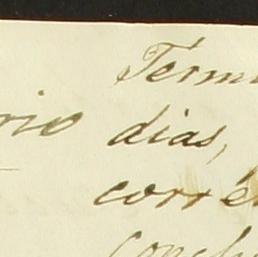 Termi
rio dias,
corré